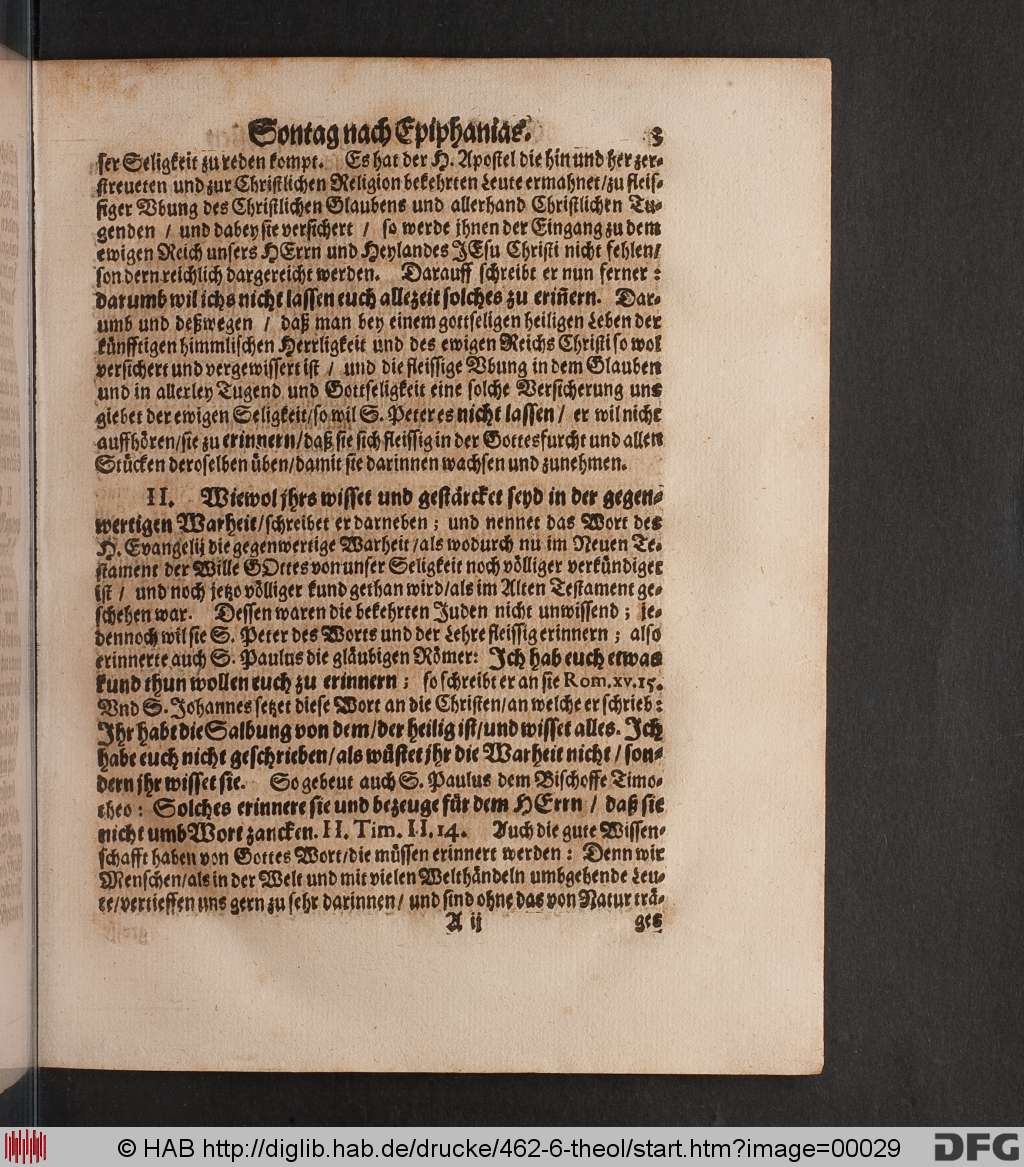 Sontag nach Epiphanias. 3
ser Seligkeit zu reden kompt. Es hat der H. Apostel die hin und her zer-
streueten und zur Christlichen Religion bekehrten Leute ermahnet/zu fleis-
siger Vbung des Christlichen Glaubens und allerhand Christlichen Tu-
genden / und dabey sie versichert / so werde jhnen der Eingang zu dem
ewigen Reich unsers HErrn und Heylandes JEsu Christi nicht fehlen/
sondern reichlich dargereicht werden. Darauff schreibt er nun ferner:
darumb wil ichs nicht lassen euch allezeit solches zu eriñern. Dar-
umb und deßwegen / daß man bey einem gottseligen heiligen Leben der
künfftigen himmlischen Herrligkeit und des ewigen Reichs Christi so wol
versichert und vergewissert ist / und die fleissige Vbung in dem Glauben
und in allerley Tugend und Gottseligkeit eine solche Versicherung uns
giebet der ewigen Seligkeit/so wil S. Peter es nicht lassen / er wil nicht
auffhören/sie zu erinnern/daß sie sich fleissig in der Gottesfurcht und allen
Stücken deroselben üben/damit sie darinnen wachsen und zunehmen.
II. Wiewol jhrs wisset und gestärcket seyd in der gegen-
wertigen Warheit/schreibet er darneben; und nennet das Wort des
H. Evangelij die gegenwertige Warheit/als wodurch nu im Neuen Te-
stament der Wille GOttes von unser Seligkeit noch völliger verkündiget
ist / und noch jetzo völliger kund gethan wird/als im Alten Testament ge-
schehen war. Dessen waren die bekehrten Juden nicht unwissend; je-
dennoch wil sie S. Peter des Worts und der Lehre fleissig erinnern; also
erinnerte auch S. Paulus die gläubigen Römer: Ich hab euch etwas
kund thun wollen euch zu erinnern; so schreibt er an sie Rom. xv. 15.
Vnd S. Johannes setzet diese Wort an die Christen/an welche er schrieb:
Ihr habt die Salbung von dem/der heilig ist/und wisset alles. Ich
habe euch nicht geschrieben/als wüstet jhr die Warheit nicht/son-
dern jhr wisset sie. So gebeut auch S. Paulus dem Bischoffe Timo-
theo: Solches erinnere sie und bezeuge für dem HErrn / daß sie
nicht umb Wort zancken. II. Tim. II. 14. Auch die gute Wissen-
schafft haben von Gottes Wort/die müssen erinnert werden: Denn wir
Menschen/als in der Welt und mit vielen Welthändeln umbgehende Leu-
te/vertieffen uns gern zu sehr darinnen/ und sind ohne das von Natur trä-
A ij ges
© HAB http://diglib.hab.de/drucke/462-6-theol/start.htm?image=00029 DFG